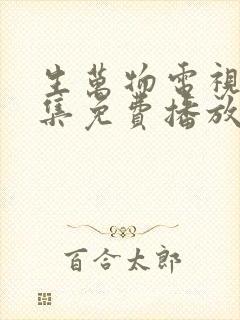 生萬物電視
集免費播放
百合太郎